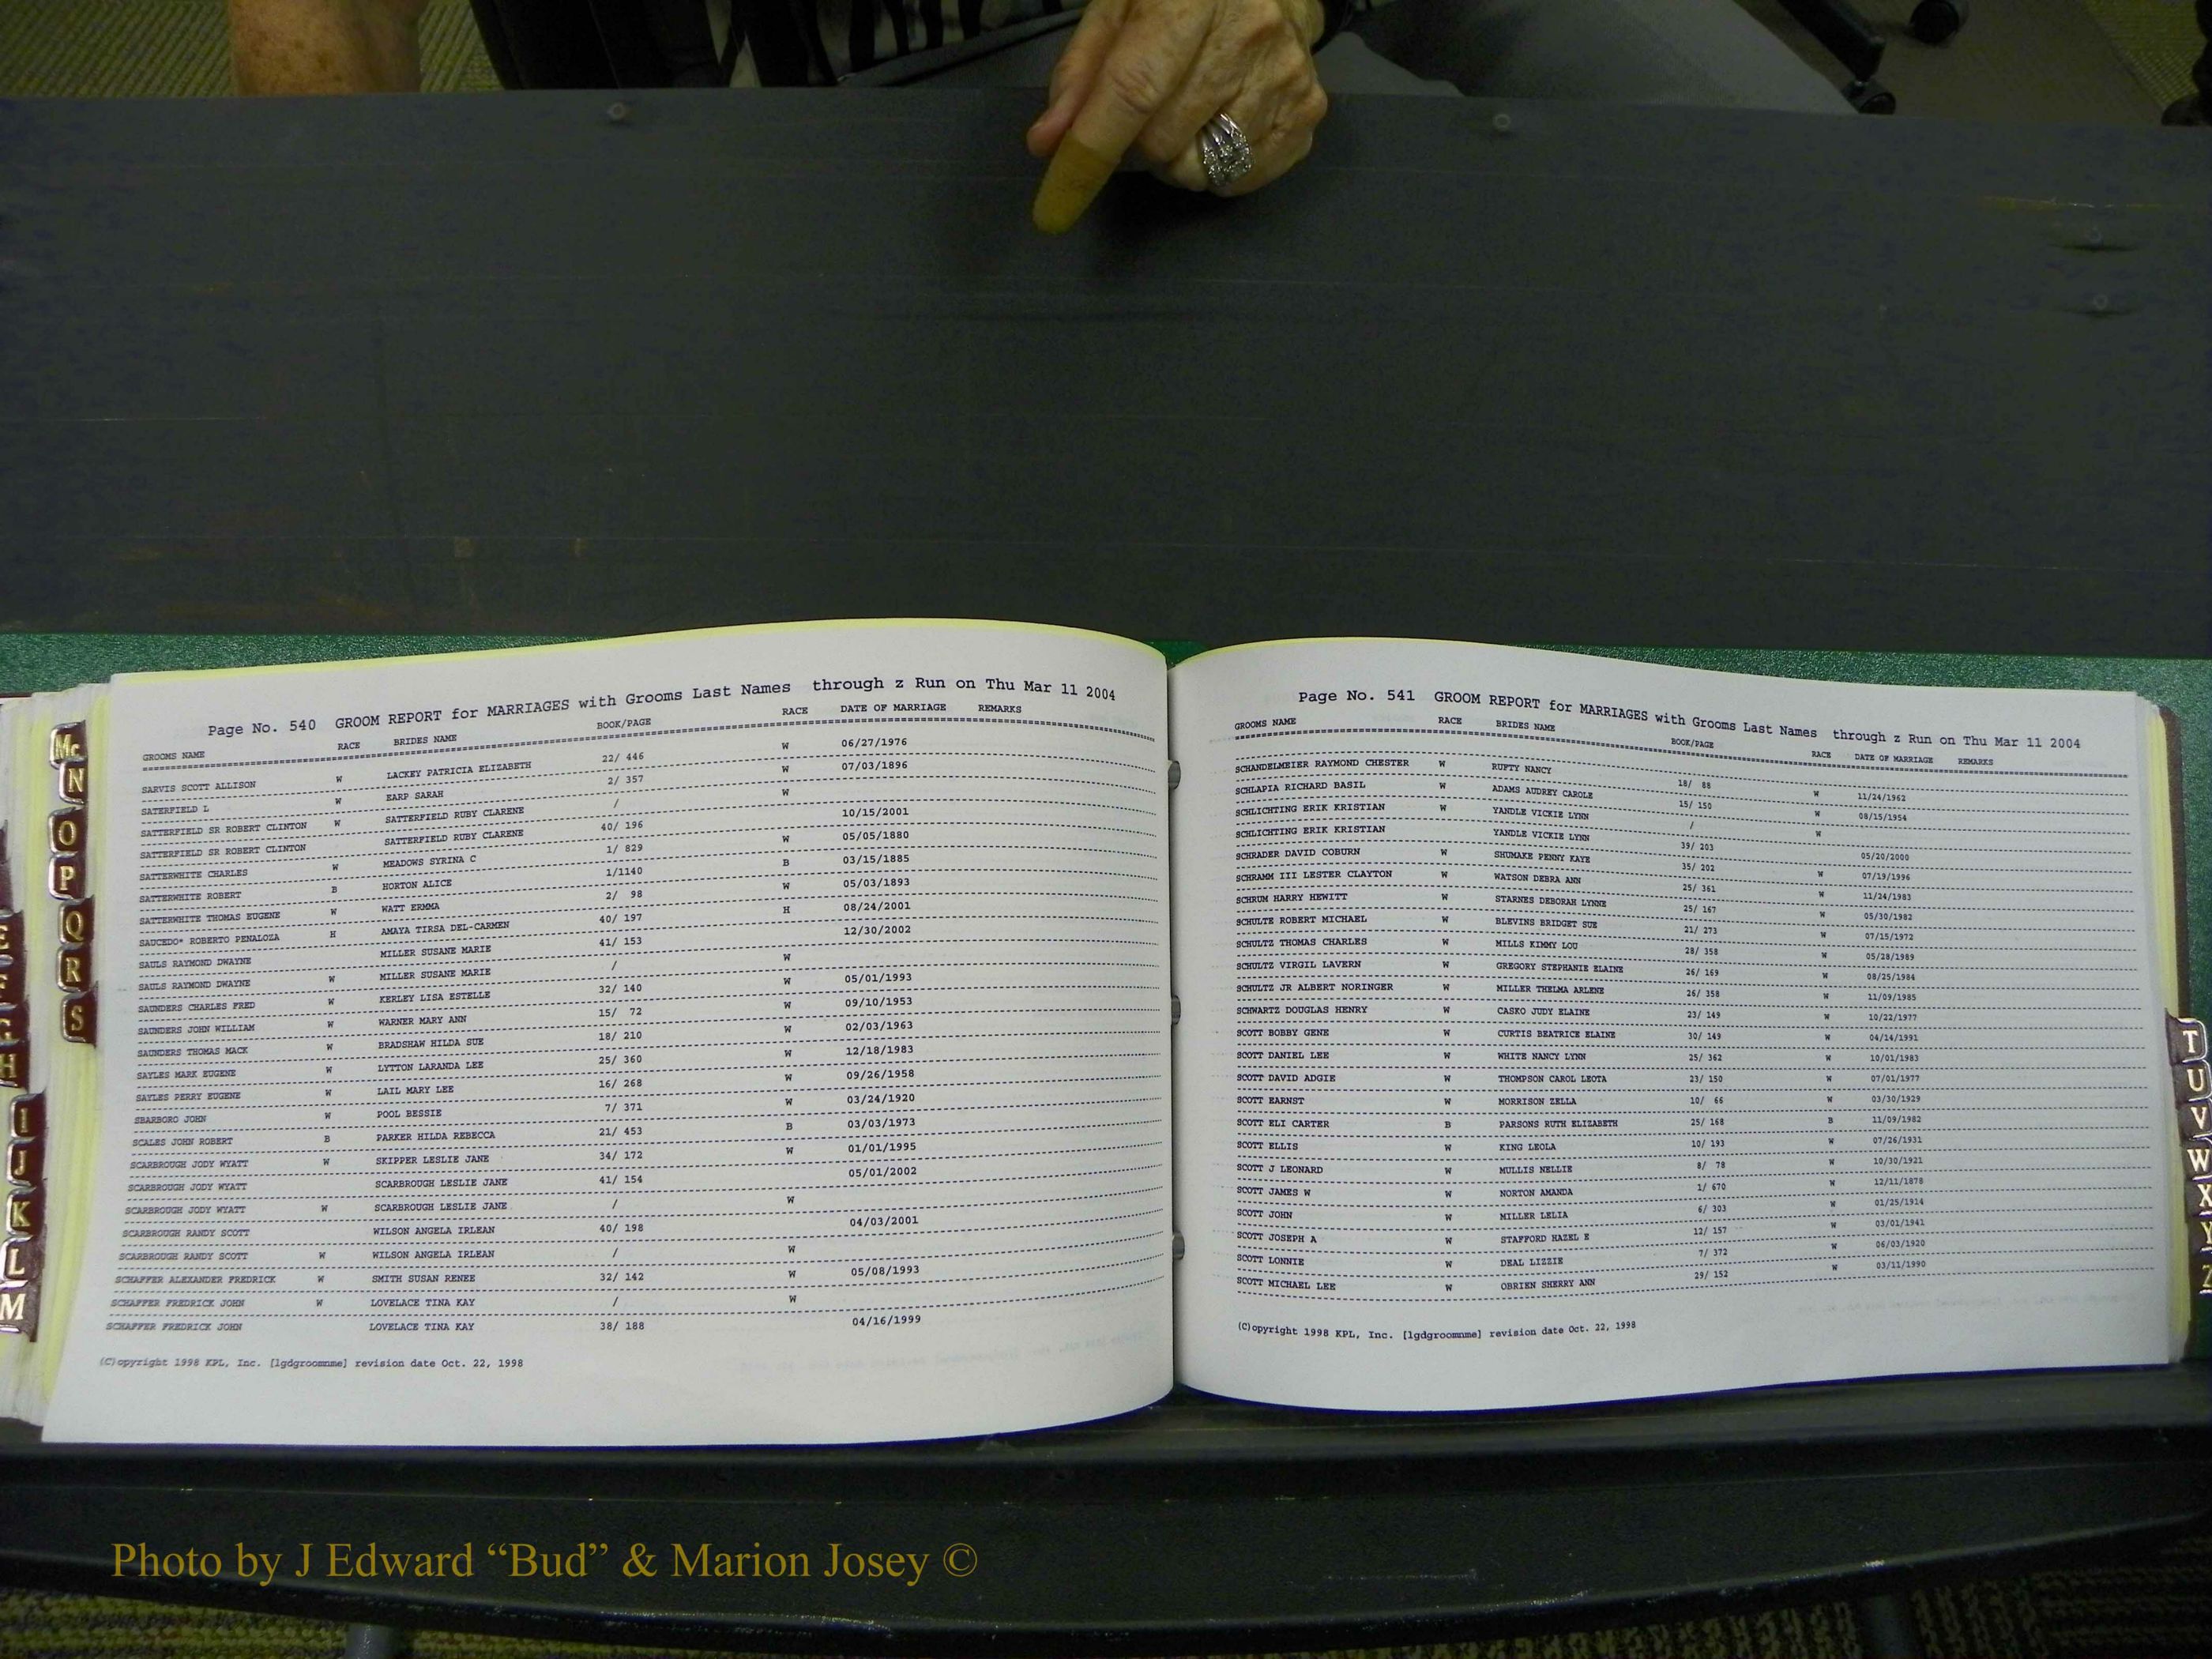 Page No. 540 GROOM REPORT for MARRIAGES with Grooms Last Names through z Run on Thu Mar 11 2004
GROOMS NAME RACE BRIDES NAME BOOK/PAGE RACE DATE OF MARRIAGE REMARKS
SARVIS SCOTT ALLISON W LACKEY PATRICIA ELIZABETH 22/ 446 W 06/27/1976
SATERFIELD L W EARP SARAH 2/ 357 W 07/03/1896
SATTERFIELD SR ROBERT CLINTON W SATTERFIELD RUBY CLARENE / W
SATTERFIELD SR ROBERT CLINTON SATTERFIELD RUBY CLARENE 40/ 196 10/15/2001
SATTERWHITE CHARLES W MEADOWS SYRINA C 1/ 829 W 05/05/1880
SATTERWHITE ROBERT B HORTON ALICE 1/1140 B 03/15/1885
SATTERWHITE THOMAS EUGENE W WATT ERMMA 2/ 98 W 05/03/1893
SAUCEDO* ROBERTO PENALOZA H AMAYA TIRSA DEL-CARMEN 40/ 197 H 08/24/2001
SAULS RAYMOND DWAYNE MILLER SUSANE MARIE 41/ 153 12/30/2002
SAULS RAYMOND DWAYNE W MILLER SUSANE MARIE / W
SAUNDERS CHARLES FRED W KERLEY LISA ESTELLE 32/ 140 W 05/01/1993
SAUNDERS JOHN WILLIAM W WARNER MARY ANN 15/ 72 W 09/10/1953
SAUNDERS THOMAS MACK W BRADSHAW HILDA SUE 18/ 210 W 02/03/1963
SAYLES MARK EUGENE W LYTTON LARANDA LEE 25/ 360 W 12/18/1983
SAYLES PERRY EUGENE W LAIL MARY LEE 16/ 268 W 09/26/1958
SBARBORO JOHN W POOL BESSIE 7/ 371 W 03/24/1920
SCALES JOHN ROBERT B PARKER HILDA REBECCA 21/ 453 B 03/03/1973
SCARBROUGH JODY WYATT W SKIPPER LESLIE JANE 34/ 172 W 01/01/1995
SCARBROUGH JODY WYATT SCARBROUGH LESLIE JANE 41/ 154 05/01/2002
SCARBROUGH JODY WYATT W SCARBROUGH LESLIE JANE / W
SCARBROUGH RANDY SCOTT WILSON ANGELA IRLEAN 40/ 198 04/03/2001
SCARBROUGH RANDY SCOTT W WILSON ANGELA IRLEAN / W
SCHAFFER ALEXANDER FREDRICK W SMITH SUSAN RENEE 32/ 142 W 05/08/1993
SCHAFFER FREDRICK JOHN W LOVELACE TINA KAY / W
SCHAFFER FREDRICK JOHN LOVELACE TINA KAY 38/ 188 04/16/1999
(C)opyright 1998 KPL, Inc. [lgdgroomnme] revision date Oct. 22, 1998
Page No. 541 GROOM REPORT for MARRIAGES with Grooms Last Names through z Run on Thu Mar 11 2004
GROOMS NAME RACE BRIDES NAME BOOK/PAGE RACE DATE OF MARRIAGE REMARKS
SCHANDELMEIER RAYMOND CHESTER W RUFTY NANCY 18/ 88 W 11/24/1962
SCHLAPIA RICHARD BASIL W ADAMS AUDREY CAROLE 15/ 150 W 08/15/1954
SCHLICHTING ERIK KRISTIAN W YANDLE VICKIE LYNN / W
SCHLICHTING ERIK KRISTIAN YANDLE VICKIE LYNN 39/ 203 05/20/2000
SCHRADER DAVID COBURN W SHUMAKE PENNY KAYE 35/ 202 W 07/19/1996
SCHRAMM III LESTER CLAYTON W WATSON DEBRA ANN 25/ 361 W 11/24/1983
SCHRUM HARRY HEWITT W STARNES DEBORAH LYNNE 25/ 167 W 05/30/1982
SCHULTE ROBERT MICHAEL W BLEVINS BRIDGET SUE 21/ 273 W 07/15/1972
SCHULTZ THOMAS CHARLES W MILLS KIMMY LOU 28/ 358 W 05/28/1989
SCHULTZ VIRGIL LAVERN W GREGORY STEPHANIE ELAINE 26/ 169 W 08/25/1984
SCHULTZ JR ALBERT NORINGER W MILLER THELMA ARLENE 26/ 358 W 11/09/1985
SCHWARTZ DOUGLAS HENRY W CASKO JUDY ELAINE 23/ 149 W 10/22/1977
SCOTT BOBBY GENE W CURTIS BEATRICE ELAINE 30/ 149 W 04/14/1991
SCOTT DANIEL LEE W WHITE NANCY LYNN 25/ 362 W 10/01/1983
SCOTT DAVID ADGIE W THOMPSON CAROL LEOTA 23/ 150 W 07/01/1977
SCOTT EARNST W MORRISON ZELLA 10/ 66 W 03/30/1929
SCOTT ELI CARTER B PARSONS RUTH ELIZABETH 25/ 168 B 11/09/1982
SCOTT ELLIS W KING LEOLA 10/ 193 W 07/26/1931
SCOTT J LEONARD W MULLIS NELLIE 8/ 78 W 10/30/1921
SCOTT JAMES W W NORTON AMANDA 1/ 670 W 12/11/1878
SCOTT JOHN W MILLER LELIA 6/ 303 W 01/25/1914
SCOTT JOSEPH A W STAFFORD HAZEL E 12/ 157 W 03/01/1941
SCOTT LONNIE W DEAL LIZZIE 7/ 372 W 06/03/1920
SCOTT MICHAEL LEE W OBRIEN SHERRY ANN 29/ 152 W 03/11/1990
(C)opyright 1998 KPL, Inc. [lgdgroomnme] revision date Oct. 22, 1998
Mc
N
O
P
Q
R
S
E
F
G
H
I
J
K
L
M
T
U
V
W
X
Y
Z
Photo by J Edward “Bud” & Marion Josey ©